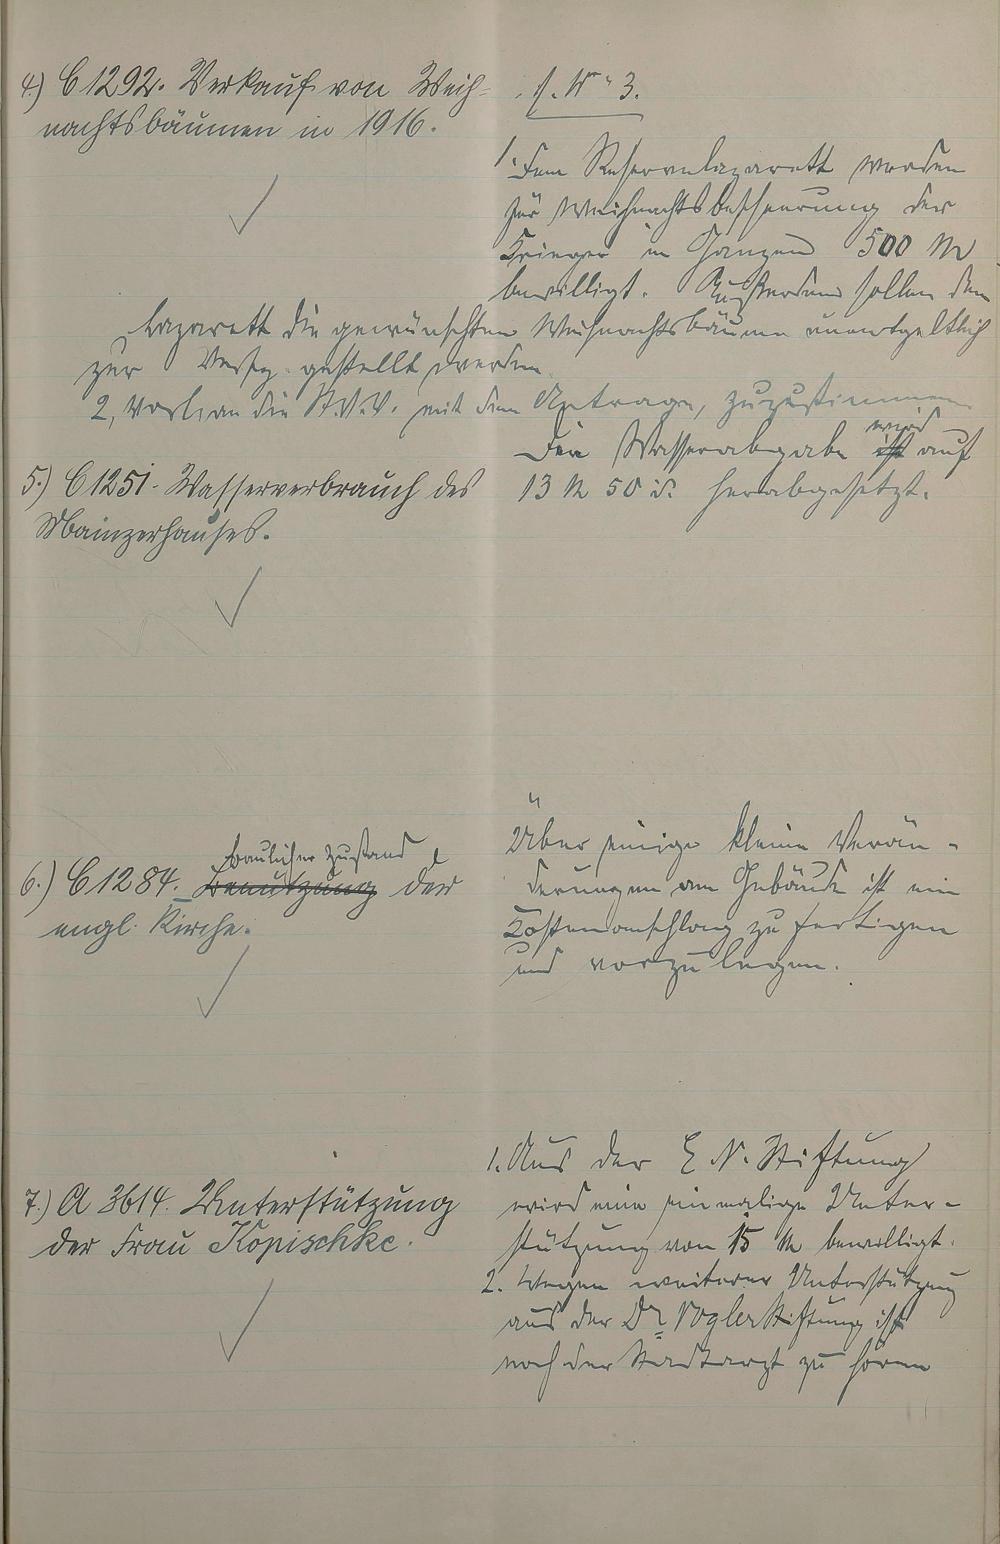 4.) C 1292. Verkauf von Weih-
nachtsbäumen in 1916.
s. N° 3.
1. Dem Reservelazarett werden
für Weihnachtsbescheerung der
Krieger im Ganzen 500 M
bewilligt. Außerdem sollen dem
Lazarett die gewünschten Weihnachtsbäume unentgeltlich
zur Verfg. gestellt werden.
2, Vorl. an die St.V.V. mit dem Antrage, zuzustimmen
5.) C 1251. Wasserverbrauch des
Mainzerhauses.
Die Wasserabgabe ist wird auf
13 M 50 d. herabgesetzt.
6.) C 1284. Benutzung baulicher Zustand der
engl. Kirche.
Über einige kleine Verän-
derungen am Gebäude ist ein
Kostenanschlag zu fertigen
und vorzulegen.
7.) A 3614. Unterstützung
der Frau Kopischke.
1. Aus der E. N. Stiftung
wird eine einmalige Unter-
stützung von 15 M bewilligt.
2. Wegen weiterer Unterstützung
aus der Dr. Vogler Stiftung ist
noch der Stadtarzt zu hören